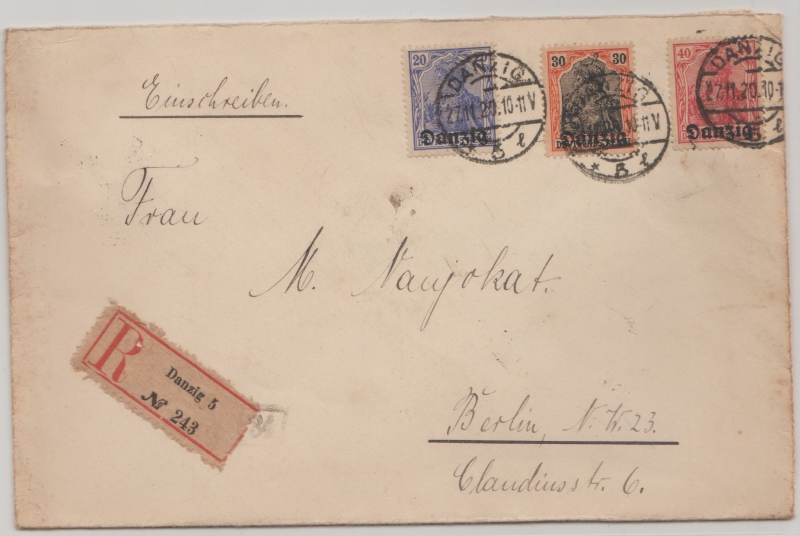 20
30 30
40
Danzig
Danzig
Danzig
DANZIG
27.11.20.10-11V
* 5 l
10-11V
* 5 l
DANZIG
27.11.20.10-1
l
Einschreiben.
Frau
M. Naujokat.
R
Danzig 5
№ 243
Berlin, N.W.23.
Claudiusstr. 6.